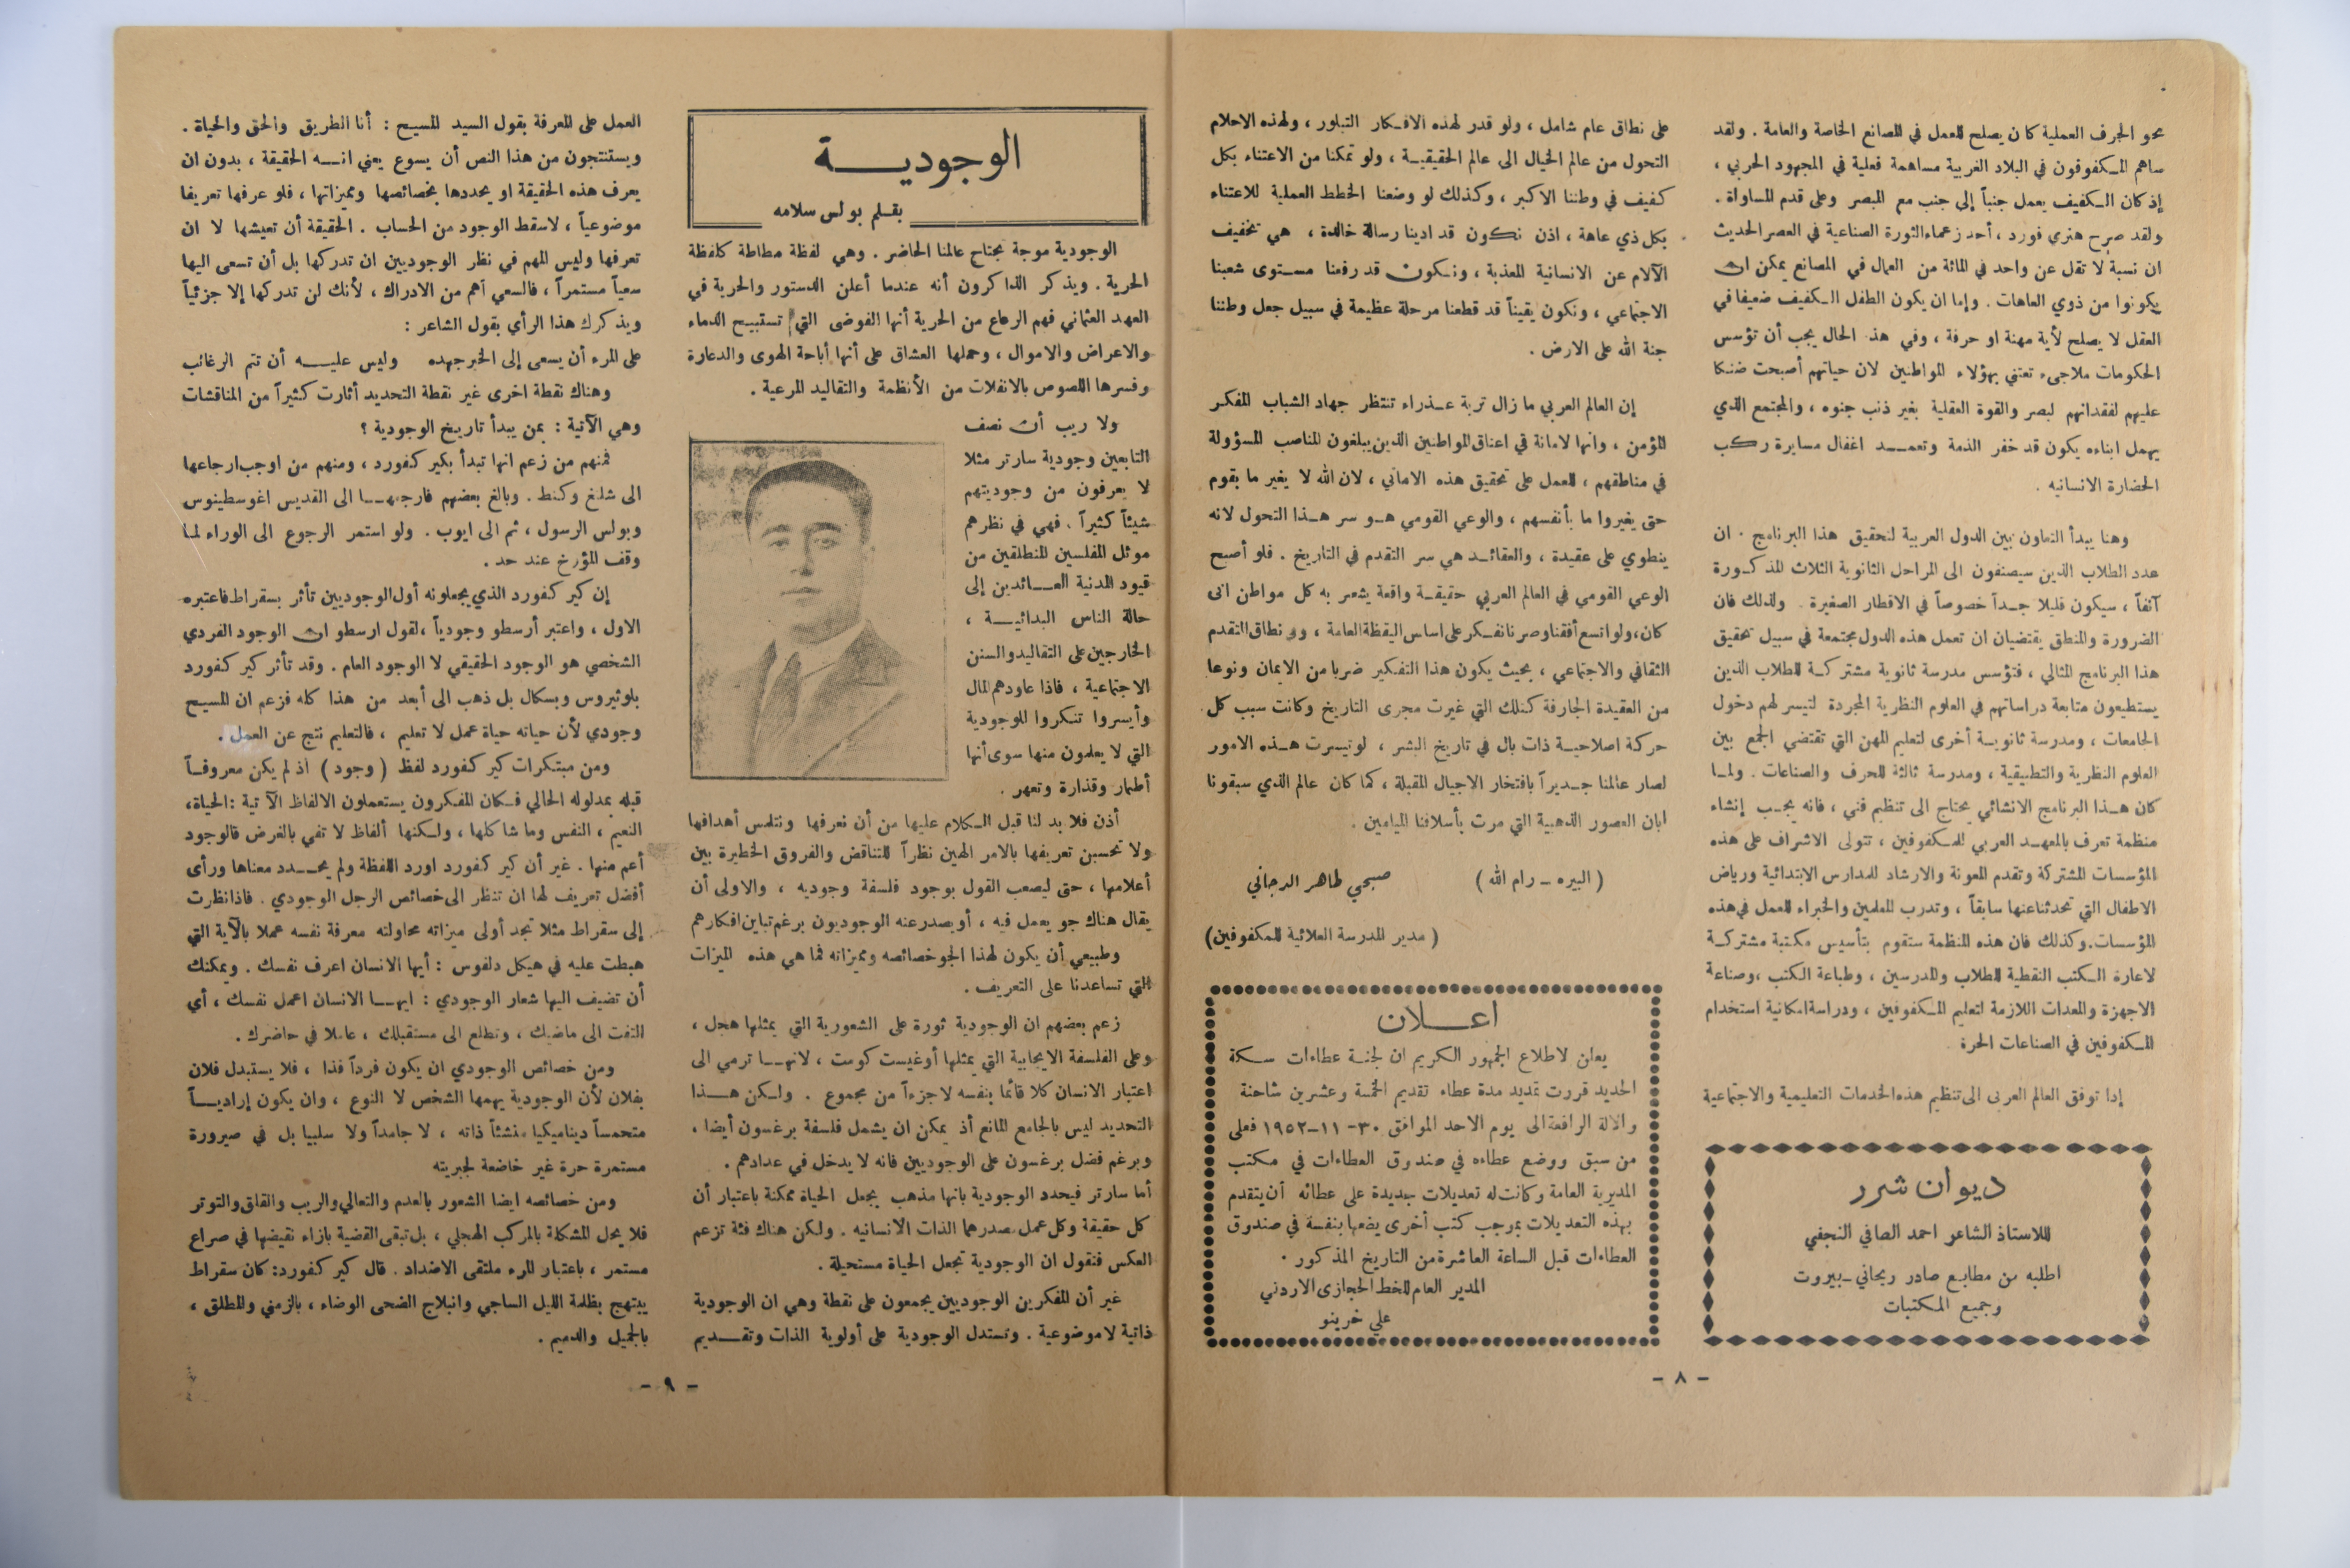 نحو الحرف العملية كان يصلح للعمل في المصانع الخاصة والعامة . ولقد
ساهم المكفوفون في البلاد الغربية مساهمة فعلية في المجهود الحربي ،
إذ كان الكفيف يعمل جنباً إلى جنب مع المبصر وعلى قدم المساواة .
ولقد صرح هنري فورد ، أحد زعماء الثورة الصناعية في العصر الحديث
ان نسبة لا تقل عن واحد في المائة من العمال في المصانع يمكن ان
يكونوا من ذوي العاهات . وإما ان يكون الطفل الكفيف ضعيفا في
العقل لا يصلح لأية مهنة او حرفة ، وفي هذ الحال يجب أن تؤسس
الحكومات ملاجىء تعتني بهؤلاء المواطنين لان حياتهم أصبحت ضنكا
عليهم لفقدانهم لبصر والقوة العقلية بغير ذنب جنوه ، والمجتمع الذي
يهمل ابناءه يكون قد خفر الذمة وتعمد اغفال مسايرة ركب
الحضارة الانسانيه .
وهنا يبدأ التعاون بين الدول العربية لتحقيق هذا البرنامج . ان
عدد الطلاب الذين سيصنفون الى المراحل الثانوية الثلاث المذكورة
آنفاً ، سيكون قليلا جداً خصوصاً في الاقطار الصغيرة . ولذلك فان
الضرورة والمنطق يقتضيان ان تعمل هذه الدول مجتمعة في سبيل تحقيق
هذا البرنامج المثالي ، فتؤسس مدرسة ثانوية مشتركة للطلاب الذين
يستطيعون متابعة دراساتهم في العلوم النظرية المجردة لتيسر لهم دخول
الجامعات ، ومدرسة ثانوية أخرى لتعليم المهن التي تقتضي الجمع بين
العلوم النظرية والتطبيقية ، ومدرسة ثالثة للحرف والصناعات . ولما
كان هذا البرنامج الانشائي يحتاج الى تنظيم فني ، فانه يجب إنشاء
منظمة تعرف بالمعهد العربي للمكفوفين ، تتولى الاشراف على هذه
المؤسسات المشتركة وتقدم المعونة والارشاد للمدارس الابتدائية ورياض
الاطفال التي تحدثنا عنها سابقاً ، وتدرب المعلمين والخبراء للعمل في هذه
المؤسسات. وكذلك فان هذه المنظمة ستقوم بتأسيس مكتبة مشتركة
لاعارة الكتب النقطية للطلاب والمدرسين ، وطباعة الكتب ، وصناعة
الاجهزة والمعدات اللازمة لتعليم المكفوفين ، ودراسة امكانية استخدام
المكفوفين في الصناعات الحرة
إذا توفق العالم العربي الى تنظيم هذه الخدمات التعليمية والاجتماعية
ديوان شرر
للاستاذ الشاعر احمد الصافي النجفي
اطلبه من مطابع صادر ريحاني - بيروت
وجميع المكتبات
على نطاق عام شامل ، ولو قدر لهذه الافكار التبلور ، ولهذه الاحلام
التحول من عالم الخيال الى عالم الحقيقية ، ولو تمكنا من الاعتناء بكل
كفيف في وطننا الاكبر ، وكذلك لو وضعنا الخطط العملية للاعتناء
بكل ذي عاهة ، اذن نكون قد ادينا رسالة خالدة ، هي تخفيف
الآلام عن الانسانية المعذبة ، ونكون قد رفعنا مستوى شعبنا
الاجتماعي ، ونكون يقيناً قد قطعنا مرحلة عظيمة في سبيل جعل وطننا
جنة الله على الارض .
إن العالم العربي ما زال تربة عذراء تنتظر جهاد الشباب المفكر
المؤمن ، وانها لامانة في اعناق المواطنين الذين يبلغون المناصب المسؤولة
في مناطقهم ، للعمل على تحقيق هذه الاماني ، لان الله لا يغير ما بقوم
حتى يغيروا ما بأنفسهم ، والوعي القومي هو سر هذا التحول لانه
ينطوي على عقيدة ، والعقائد هي سر التقدم في التاريخ . فلو أصبح
الوعي القومي في العالم العربي حقيقة واقعة يشعر به كل مواطن انى
كان، ولو اتسع أفقنا وصرنا نفكر على اساس اليقظة العامة ، وفي نطاق التقدم
الثقافي والاجتماعي ، بحيث يكون هذا التفكير ضربا من الايمان ونوعا
من العقيدة الجارفة كتلك التي غيرت مجرى التاريخ وكانت سبب كل
حركة اصلاحية ذات بال في تاريخ البشر ، لو تيسرت هذه الامور
لصار عالمنا جديراً بافتخار الاجيال المقبلة ، كما كان عالم الذي سبقونا
ابان العصور الذهبية التي مرت بأسلافنا الميامين .
( البيره - رام الله ) صبحي طاهر الدجاني
( مدير المدرسة العلائية للمكفوفين)
اعلان
يعلن لاطلاع الجمهور الكريم ان لجنة عطاءات سكة
الحديد قررت تمديد مدة عطاء تقديم الخمسة وعشرين شاحنة
والالة الرافعة الى يوم الاحد الموافق ٣٠-١١-١٩٥٢ فعلى
من سبق ووضع عطاءه في صندوق العطاءات في مكتب
المديرية العامة وكانت له تعديلات جديدة على عطائه أن يتقدم
بهذه التعديلات بموجب كتب أخرى يضعها بنفسة في صندوق
العطاءات قبل الساعة العاشرة من التاريخ المذكور .
المدير العام للخط الحجازى الاردني
علي خرينو
- ٨ -
الوجودية
بقلم بولس سلامه
الوجودية موجة تجتاح عالمنا الحاضر . وهي لفظة مطاطة كلفظة
الحرية . ويذكر الذاكرون أنه عندما أعلن الدستور والحرية في
العهد العثماني فهم الرعاع من الحرية أنها الفوضى التي تستبيح الدماء
والاعراض والاموال ، وحملها العشاق على أنها أباحة الهوى والدعارة
وفسرها اللصوص بالانفلات من الأنظمة والتقاليد المرعية .
ولا ريب أن نصف
التابعين وجودية سارتر مثلا
لا يعرفون من وجوديتهم
شيئاً كثيراً . فهي في نظرهم
موئل المفلسين المنطلقين من
قيود المدنية العائدين إلى
حالة الناس البدائية ،
الخارجين على التقاليد والسنن
الاجتماعية ، فاذا عاودهم المال
وأيسروا تنكروا للوجودية
التي لا يعلمون منها سوى أنها
أطمار وقذارة وتعهر .
أذن فلا بد لنا قبل الكلام عليها من أن نعرفها ونتلمس أهدافها
ولا تحسبن تعريفها بالامر الهين نظراً للتناقض والفروق الخطيرة بين
أعلامها ، حتى ليصعب القول بوجود فلسفة وجوديه ، والاولى أن
يقال هناك جو يعمل فيه ، أو يصدر عنه الوجوديون برغم تباين افكارهم
وطبيعي أن يكون لهذا الجو خصائصه ومميزاته فما هي هذه الميزات
التي تساعدنا على التعريف .
زعم بعضهم ان الوجودية ثورة على الشعورية التي يمثلها هجل ،
وعلى الفلسفة الايجابية التي يمثلها أوغيست كومت ، لانها ترمي الى
اعتبار الانسان كلا قائما بنفسه لا جزءاً من مجموع . ولكن هذا
التحديد ليس بالجامع المانع أذ يمكن ان يشمل فلسفة برغسون أيضا ،
وبرغم فضل برغسون على الوجوديين فانه لا يدخل في عدادهم .
أما سارتر فيحدد الوجودية بانها مذهب يجعل الحياة ممكنة باعتبار أن
كل حقيقة وكل عمل مصدرهما الذات الانسانيه . ولكن هناك فئة تزعم
العكس فتقول ان الوجودية تجعل الحياة مستحيلة .
غير أن المفكرين الوجوديين يجمعون على نقطة وهي ان الوجودية
ذاتية لا موضوعية . وتستدل الوجودية على أولوية الذات وتقديم
العمل على المعرفة بقول السيد المسيح : أنا الطريق والحق والحياة .
ويستنتجون من هذا النص أن يسوع يعني انه الحقيقة ، بدون ان
يعرف هذه الحقيقة او يحددها بخصائصها ومميزاتها ، فلو عرفها تعريفا
موضوعياً ، لاسقط الوجود من الحساب . الحقيقة أن تعيشها لا ان
تعرفها وليس المهم في نظر الوجوديين ان تدركها بل أن تسعى اليها
سعياً مستمراً ، فالسعي أهم من الادراك ، لأنك لن تدركها إلا جزئياً
ويذكرك هذا الرأي بقول الشاعر :
على المرء أن يسعى إلى الخير جهده وليس عليه أن تتم الرغائب
وهناك نقطة اخرى غير نقطة التحديد أثارت كثيراً من المناقشات
وهي الآتية : بمن يبدأ تاريخ الوجودية ؟
فمنهم من زعم انها تبدأ بكير كفورد ، ومنهم من اوجب ارجاعها
الى شلنغ وكنط . وبالغ بعضهم فارجعها الى القديس اغوسطينوس
وبولس الرسول ، ثم الى ايوب . ولو استمر الرجوع الى الوراء لما
وقف المؤرخ عند حد .
إن كير كفورد الذي يجعلونه أول الوجوديين تأثر بسقراط فاعتبره
الاول ، واعتبر أرسطو وجودياً ، لقول ارسطو ان الوجود الفردي
الشخصي هو الوجود الحقيقي لا الوجود العام . وقد تأثر كير كفورد
بلوثيروس وبسكال بل ذهب الى أبعد من هذا كله فزعم ان المسيح
وجودي لأن حياته حياة عمل لا تعليم ، فالتعليم نتج عن العمل .
ومن مبتكرات كير كفورد لفظ ( وجود ) اذ لم يكن معروفاً
قبله بمدلوله الحالي فكان المفكرون يستعملون الالفاظ الآتية : الحياة،
النعيم ، النفس وما شاكلها ، ولكنها ألفاظ لا تفي بالغرض فالوجود
أعم منها . غير أن كير كفورد اورد اللفظة ولم يحدد معناها ورأى
أفضل تعريف لها ان تنظر الى خصائص الرجل الوجودي . فاذا نظرت
إلى سقراط مثلا تجد أولى ميزاته محاولته معرفة نفسه عملا بالآية التي
هبطت عليه في هيكل دلفوس : أيها الانسان اعرف نفسك . ويمكنك
أن تضيف اليها شعار الوجودي : ايها الانسان اعمل نفسك ، أي
التفت الى ماضيك ، وتطلع الى مستقبلك ، عاملا في حاضرك .
ومن خصائص الوجودي ان يكون فرداً فذا ، فلا يستبدل فلان
بفلان لأن الوجودية يهمها الشخص لا النوع ، وان يكون إرادياً
متحمساً ديناميكيا منشئاً ذاته ، لا جامداً ولا سلبيا بل في صيرورة
مستمرة حرة غير خاضعة لجبريته
ومن خصائصه ايضا الشعور بالعدم والتعالي والريب والقلق والتوتر
فلا يحل المشكلة بالمركب الهجلي ، بل تبقى القضية بازاء نقيضها في صراع
مستمر ، باعتبار المرء ملتقى الاضداد . قال كير كفورد: كان سقراط
يبتهج بظلمة الليل الساجي وانبلاج الضحى الوضاء ، بالزمني والمطلق ،
بالجميل والدميم .
- ٩ -